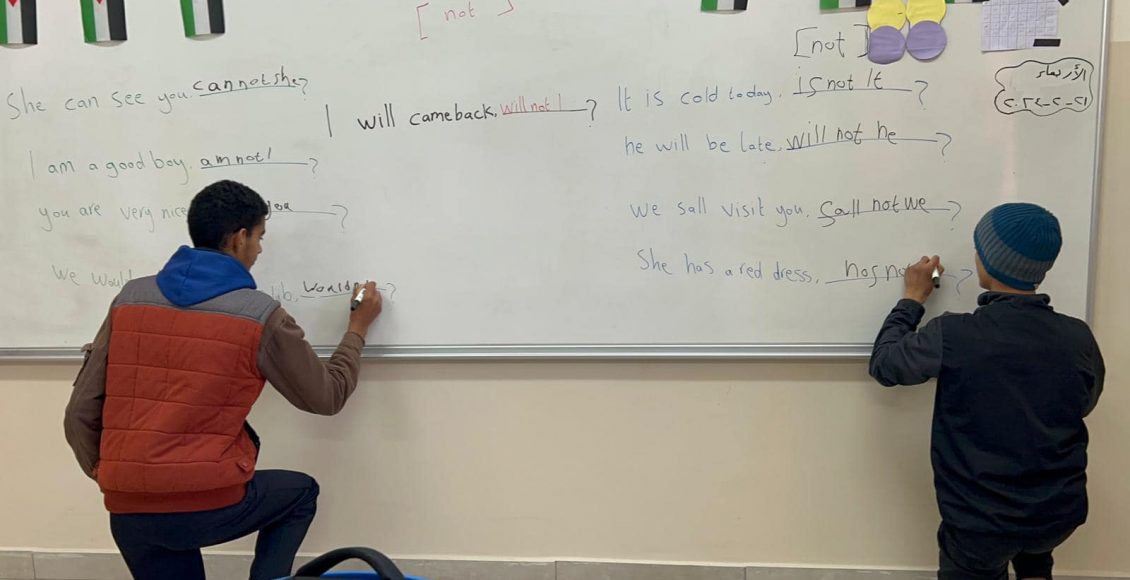 [ not ]
She can see you. cannot she?
I am a good boy. am not I ?
you are very nice you ?
We would ?
I will cameback, will not I ?
[not]
It is cold today. is not It ?
he will be late, will not he ?
We sall visit you. Sall not we ?
She has a red dress, ?
الأربعاء
٢٠٢٤-٢-٢١